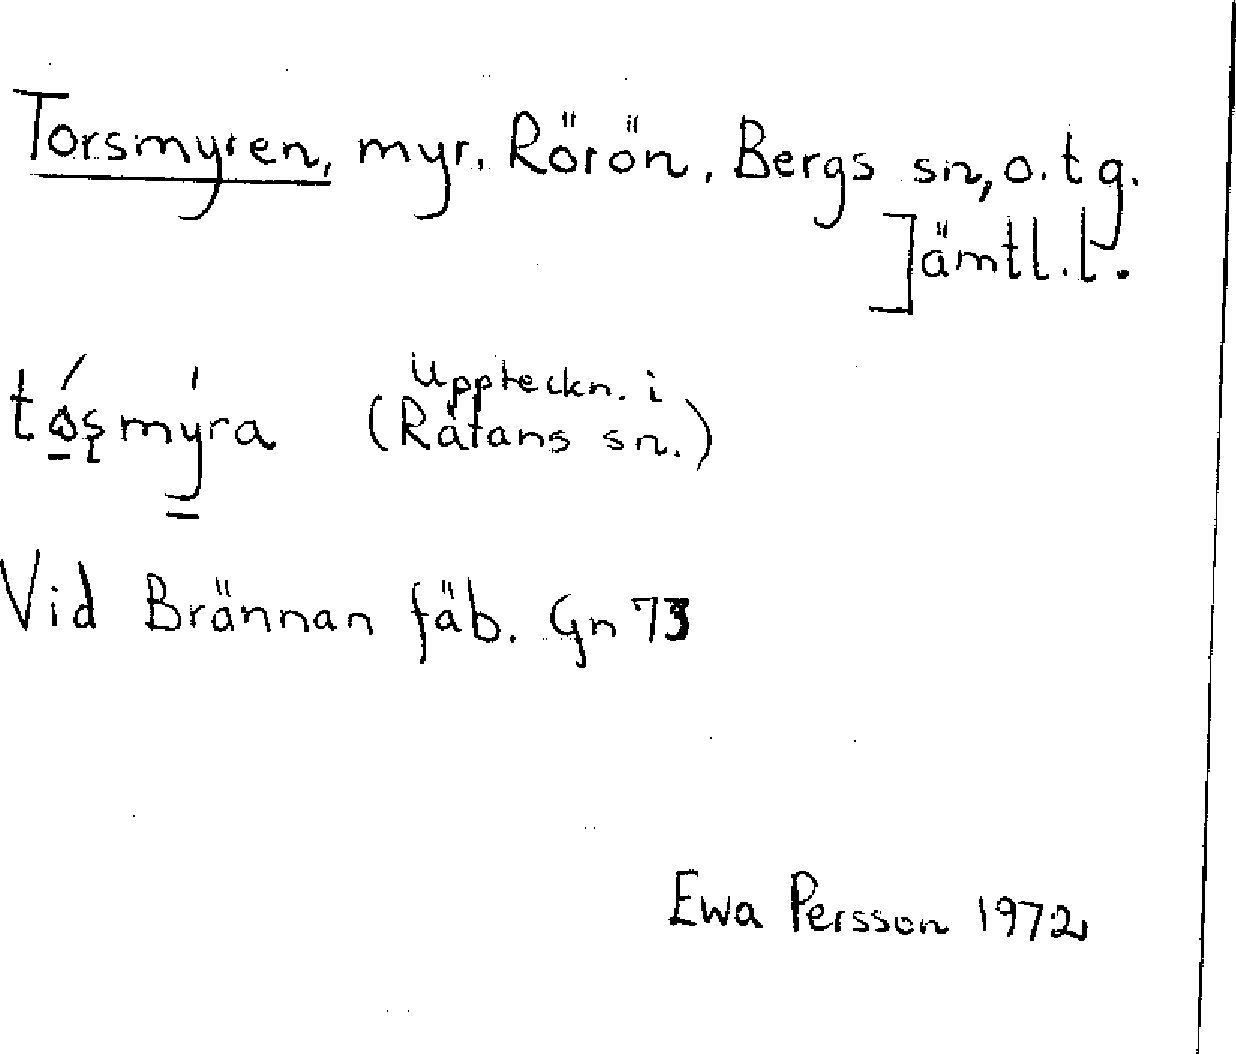 Torsmyren, myr. Rörön, Bergs sn, o. tg.
Jämtl.l.
tósmýra (Uppteckn. i Rätans sn.)
Vid Brännan fäb. Gn 73
Ewa Persson 1972